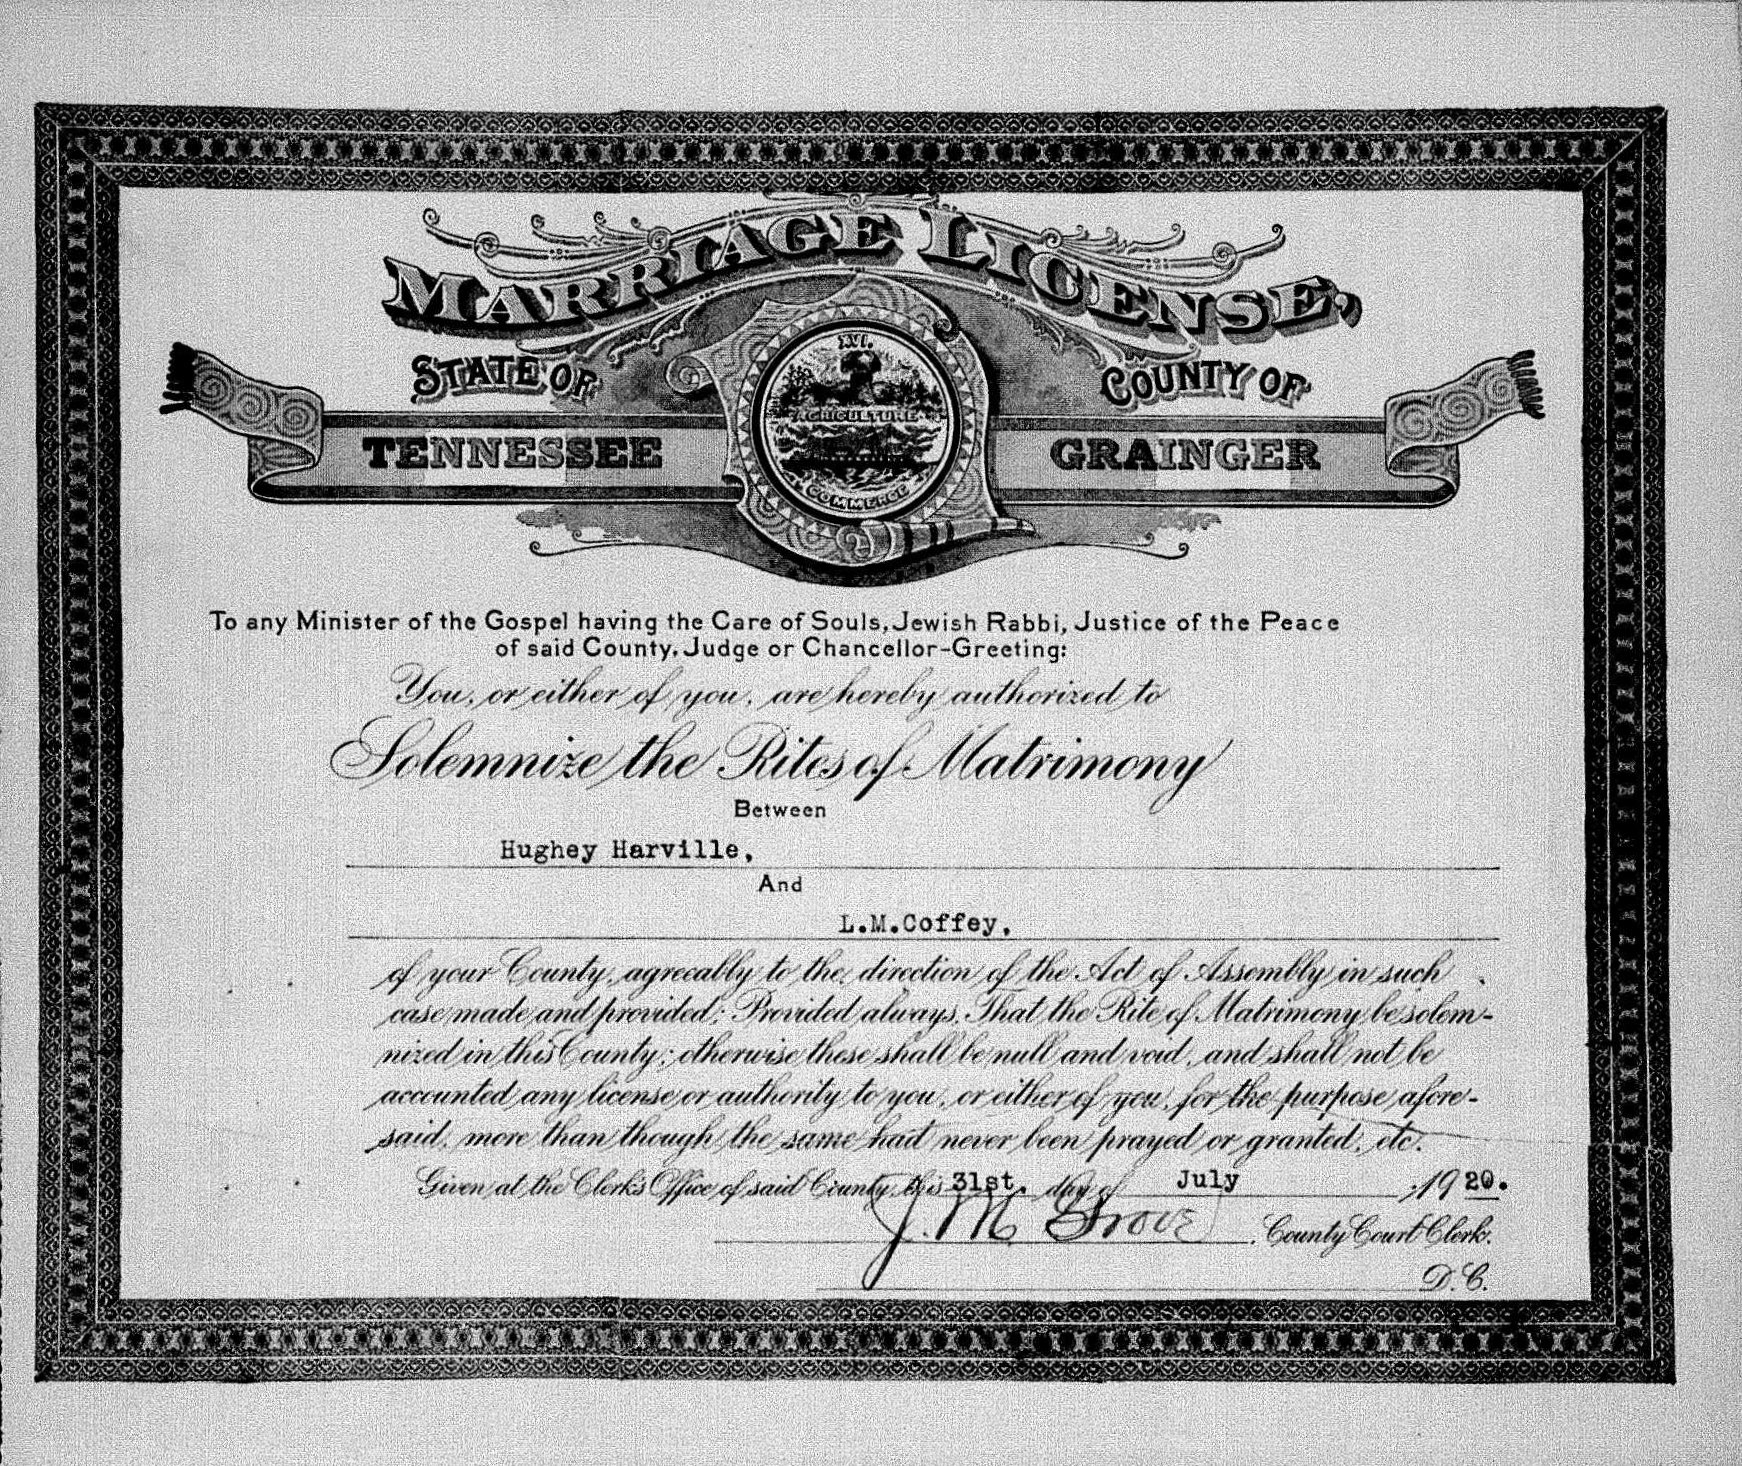 MARRIAGE LICENSE,
STATE OF
COUNTY OF
TENNESSEE
GRAINGER
XVI.
AGRICULTURE
COMMERCE
To any Minister of the Gospel having the Care of Souls, Jewish Rabbi, Justice of the Peace
of said County, Judge or Chancellor-Greeting:
You, or either of you, are hereby authorized to
Solemnize the Rites of Matrimony
Between
Hughey Harville,
And
L.M.Coffey,
of your County, agreeably to the direction of the Act of Assembly in such
case made and provided; Provided always, That the Rite of Matrimony be solem-
nized in this County; otherwise these shall be null and void, and shall not be
accounted any license or authority to you, or either of you, for the purpose afore-
said, more than though the same had never been prayed or granted, etc.
Given at the Clerk's Office of said County, this 31st. day of July ,1920.
J. M. Grove . County Court Clerk.
D.C.